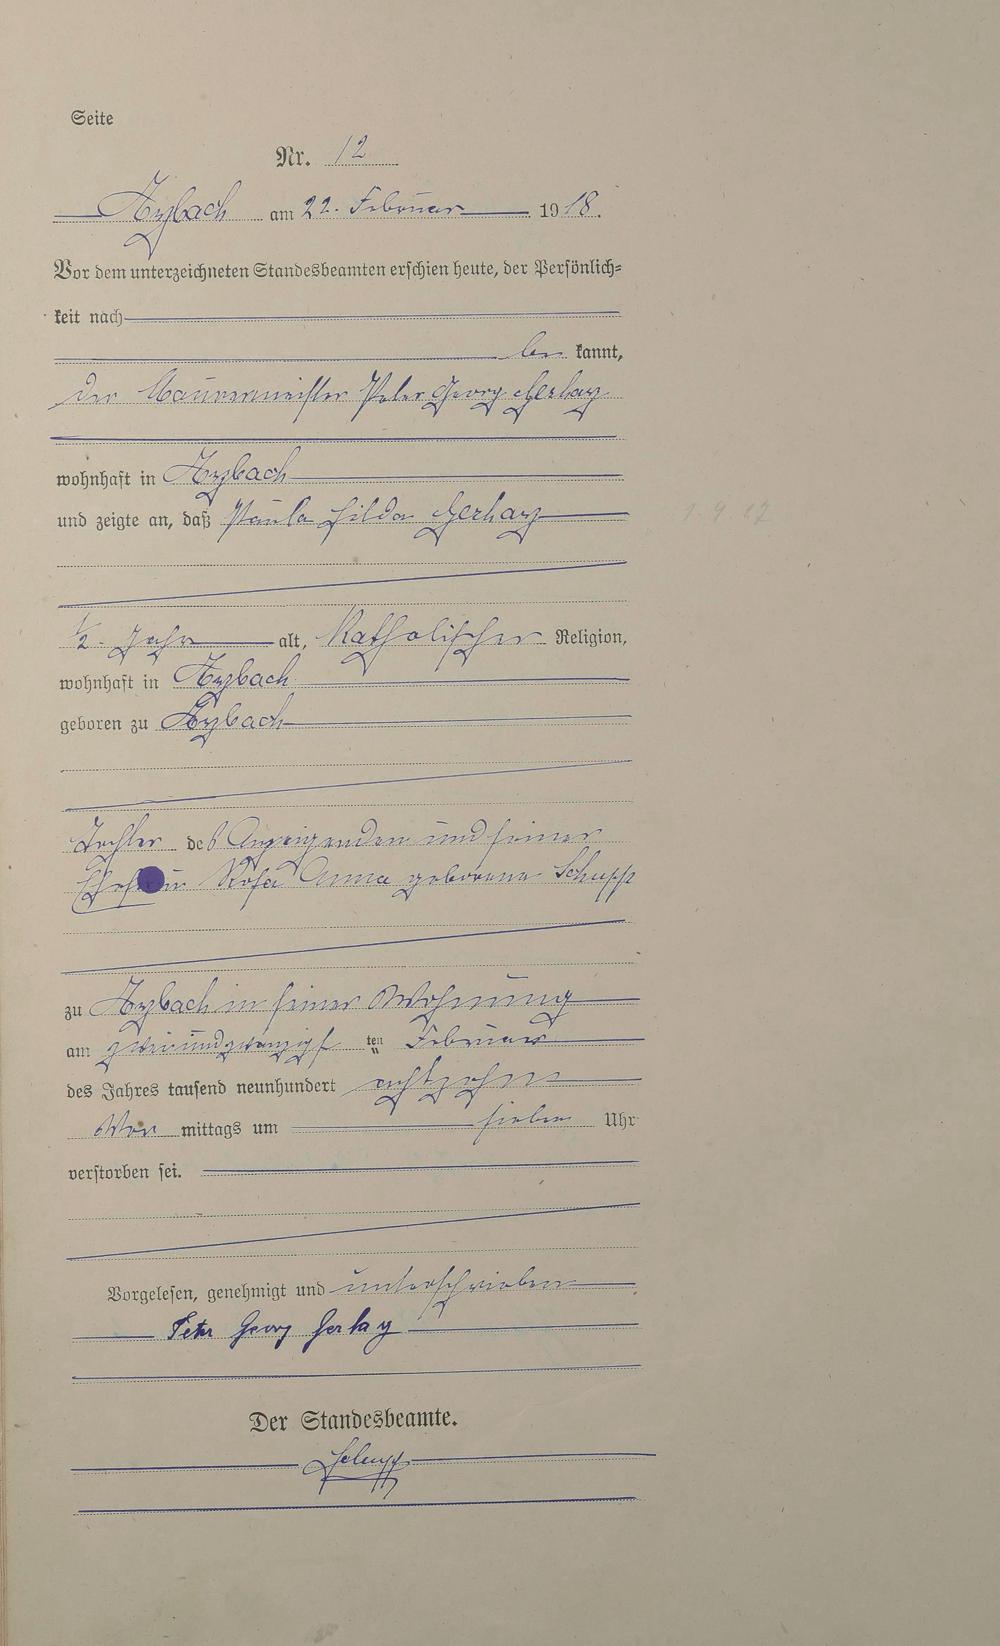 Seite
Nr. 12
Arzbach am 22. Februar 1918.
Vor dem unterzeichneten Standesbeamten erschien heute, der Persönlich=
keit nach
be kannt,
der Maurermeister Peter Georg Gerharz
wohnhaft in Arzbach
und zeigte an, daß Paula Hilda Gerharz
1/2 Jahr alt, katholischer Religion,
wohnhaft in Arzbach
geboren zu Arzbach
Tochter des Anzeigenden und seiner
Ehefrau Rosa Anna geborene Schupp
zu Arzbach in seiner Wohnung
am zweiundzwanzigs ten Februar
des Jahres tausend neunhundert achtzehn
Vor mittags um sieben Uhr
verstorben sei.
Vorgelesen, genehmigt und unterschrieben
Peter Georg Gerharz
Der Standesbeamte.